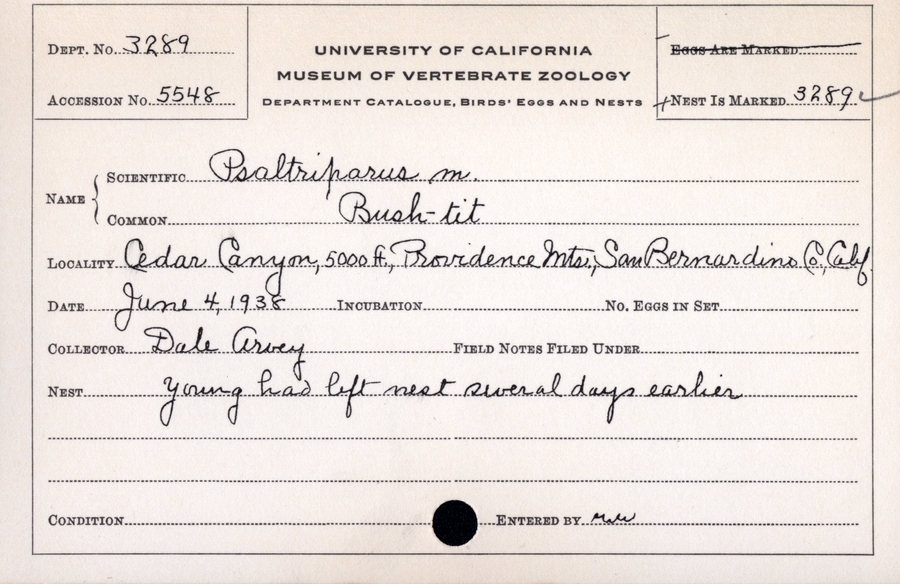 Dept. No. 3289
Accession No. 5548
UNIVERSITY OF CALIFORNIA
MUSEUM OF VERTEBRATE ZOOLOGY
Department Catalogue, Birds' Eggs and Nests
Eggs Are Marked
Nest Is Marked 3289
Name
Scientific Psaltriparus m.
Common Bush-tit
Locality Cedar Canyon, 5000 ft, Providence Mts., San Bernardino Co., Calif.
Date June 4, 1938 Incubation No. Eggs in Set
Collector Dale Arvey Field Notes Filed Under
Nest Young had left nest several days earlier
Condition Entered by